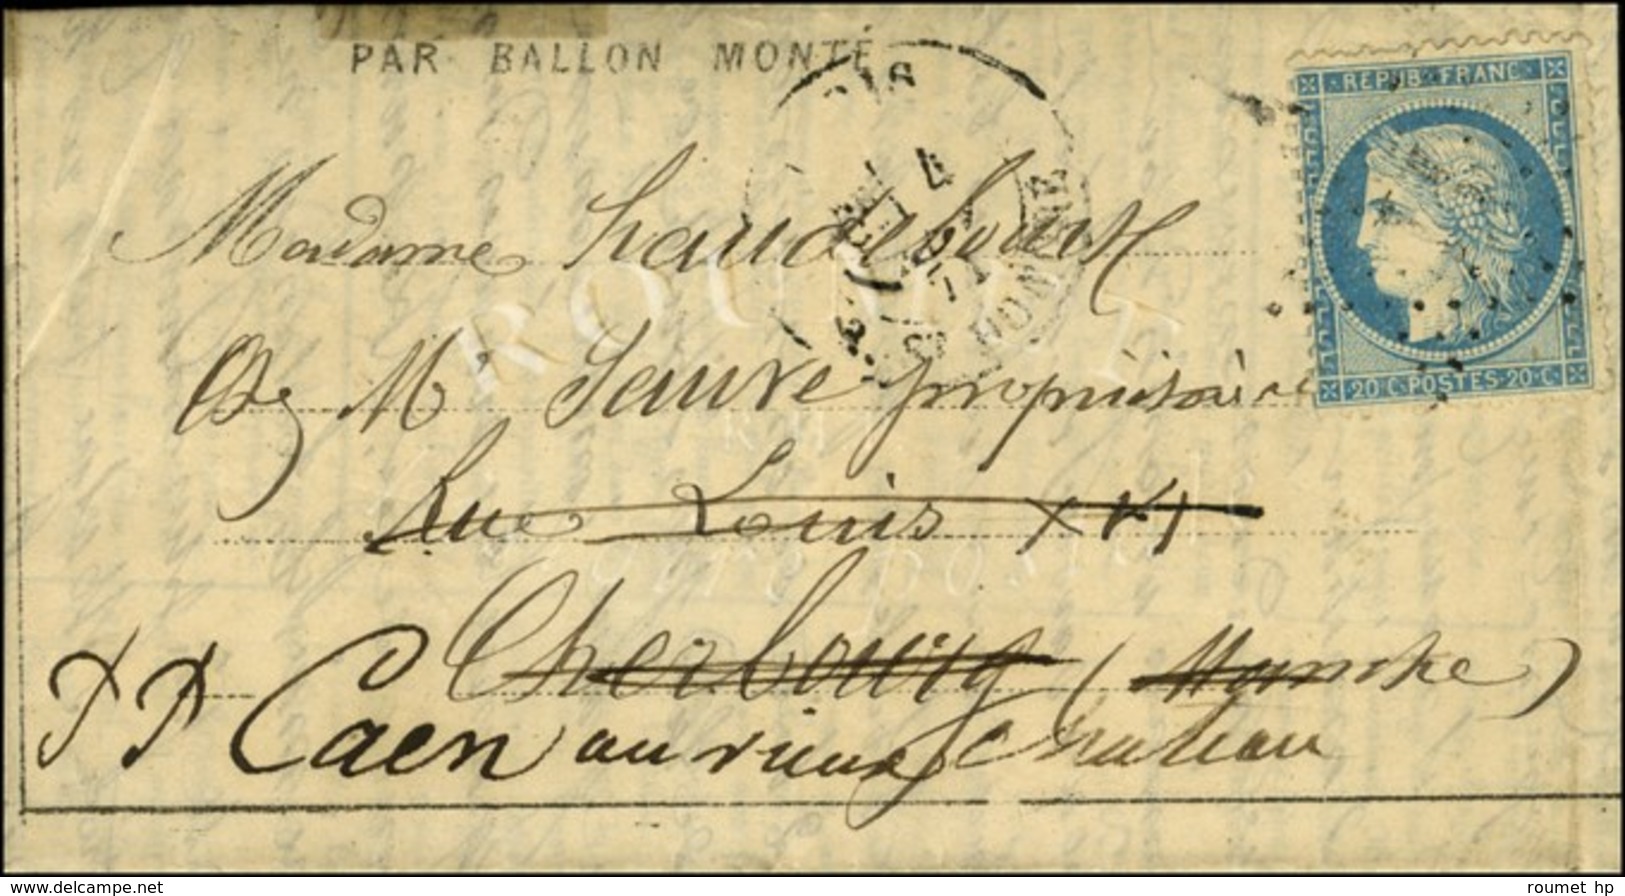 PAR BALLON MONTÉ
REPUB·FRANC·
20·C·POSTES·20·C·
Madame
Mr Sauve propriétaire
Rue Louis XVI
Cherbourg (Manche)
Caen au vieux Chateau
ROUMET
71
roumet hp